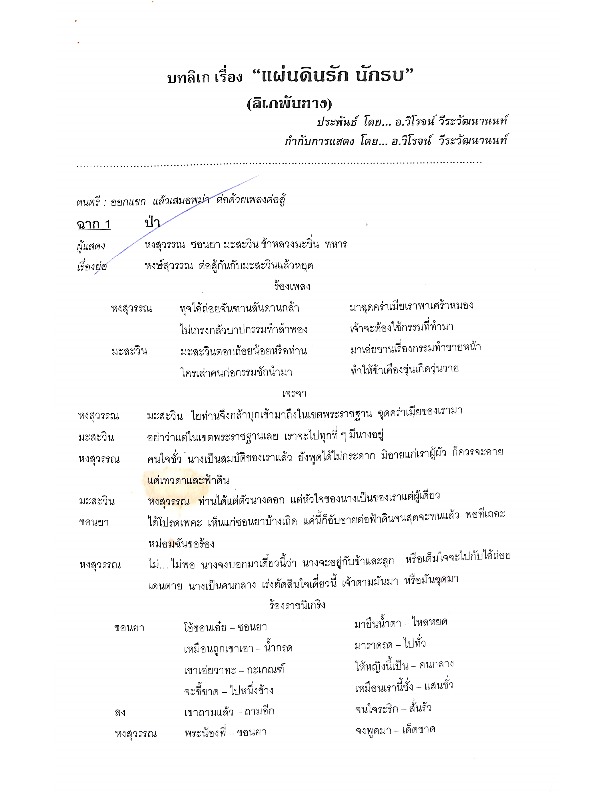 บทลิเก เรื่อง “แผ่นดินรัก นักรบ”
(ลิเกพันทาง)
ประพันธ์ โดย... อ.วิโรจน์ วีระวัฒนานนท์
กำกับการแสดง โดย... อ.วิโรจน์ วีระวัฒนานนท์
ดนตรี : ออกแขก แล้วเสมอพม่า ต่อด้วยเพลงต่อสู้
ฉาก 1 ป่า
ผู้แสดง หงสุวรรณ ซอนยา มะสะวิน ข้าหลวงนะขิ่น ทหาร
เรื่องย่อ หงษ์สุวรรณ ต่อสู้กันกับมะสะวินแล้วหยุด
ร้องเพลง
หงสุวรรณ ทุดไอ้ถ่อยจันฑานสันดานกล้า มาฉุดคร่าเมียเราพาเศร้าหมอง
ไม่เกรงกลัวบาปกรรมทำลำพอง เจ้าจะต้องใช้กรรมที่ทำมา
มะสะวิน มะสะวินตอกถ้อยน้อยหรือท่าน มาเอ่ยขานเรื่องกรรมทำขายหน้า
ใครเล่าคนก่อกรรมชักนำมา ทำให้ข้าเคืองขุ่นเกิดวุ่นวาย
เจรจา
หงสุวรรณ มะสะวิน ไยท่านจึงกล้าบุกเข้ามาถึงในเขตพระราชฐาน ฉุดคร่าเมียของเรามา
มะสะวิน อย่าว่าแต่ในเขตพระราชฐานเลย เราจะไปทุกที่ ๆ มีนางอยู่
หงสุวรรณ คนใจชั่ว นางเป็นสมบัติของเราแล้ว ยังพูดได้ไม่กระดาก มิอายแก่เราผู้ผัว ก็ควรจะอาย
แด่เทวดาและฟ้าดิน
มะสะวิน หงสุวรรณ ท่านได้แต่ตัวนางดอก แต่หัวใจของนางเป็นของเราแต่ผู้เดียว
ซอนยา ได้โปรดเพคะ เห็นแก่ซอนยาบ้างเถิด แค่นี้ก็อับอายต่อฟ้าดินจนสุดจะทนแล้ว พอทีเถอะ
หม่อมฉันขอร้อง
หงสุวรรณ ไม่... ไม่พอ นางจงบอกมาเดี๋ยวนี้ว่า นางจะอยู่กับข้าและลูก หรือเต็มใจจะไปกับไอ้ถ่อย
เดนตาย นางเป็นคนกลาง เร่งตัดสินใจเดี๋ยวนี้ เจ้าตามมันมา หรือมันฉุดมา
ร้องราชนิเกริง
ซอนยา โอ้ซอนเอ๋ย – ซอนยา มายืนน้ำตา – ไหลหยด
เหมือนถูกเขาเอา – น้ำกรด มาราดรด – ไปทั่ว
เขาเอ่ยวาทะ – กะเกณฑ์ ให้หญิงนี้เป็น – คนกลาง
จะชี้ขาด – ไปหนึ่งข้าง เหมือนเรานี้ชั่ง – แสนชั่ว
สง เขาถามแล้ว – ถามอีก จนใจระริก – สั่นรัว
หงสุวรรณ พระน้องพี่ – ซอนยา จงพูดมา – เด็ดขาด